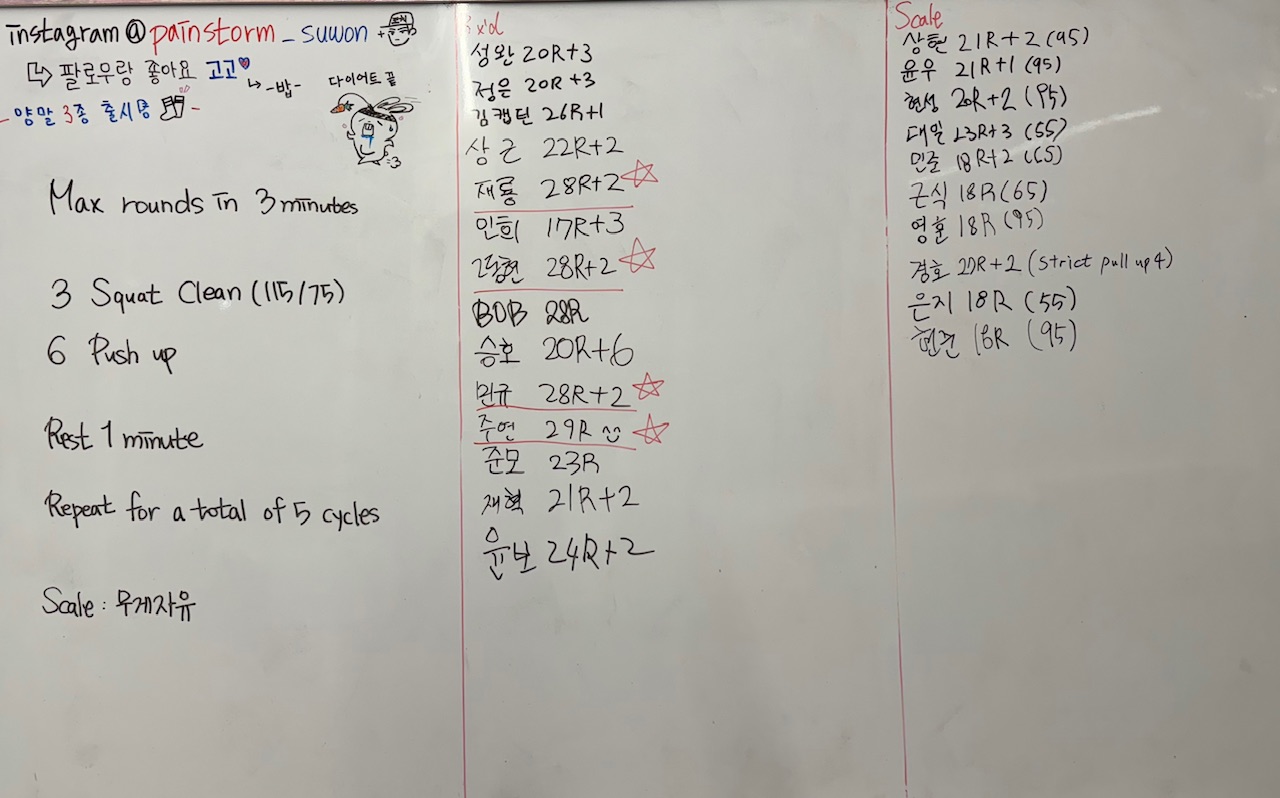 instagram@painstorm_suwon +
팔로우랑 좋아요 고고 -밥-
다이어트 끝
- 양말 3종 출시중 -
Max rounds in 3 minutes
3 Squat Clean (115/75)
6 Push up
Rest 1 minute
Repeat for a total of 5 cycles
Scale : 무게자유
x'd
성완 20R+3
정은 20R+3
김캡틴 26R+1
상근 22R+2
재룡 28R+2
인희 17R+3
28R+2
BOB 28R
승호 20R+6
민규 28R+2
주연 29R
준모 23R
재혁 21R+2
윤보 24R+2
Scale
상현 21R+2 (95)
윤우 21R+1 (95)
현성 20R+2 (95)
대일 23R+3 (55)
민준 18R+2 (65)
근식 18R (65)
영훈 18R (95)
경호 R+2 (strict pull up 4)
은지 18R (55)
현준 (95)